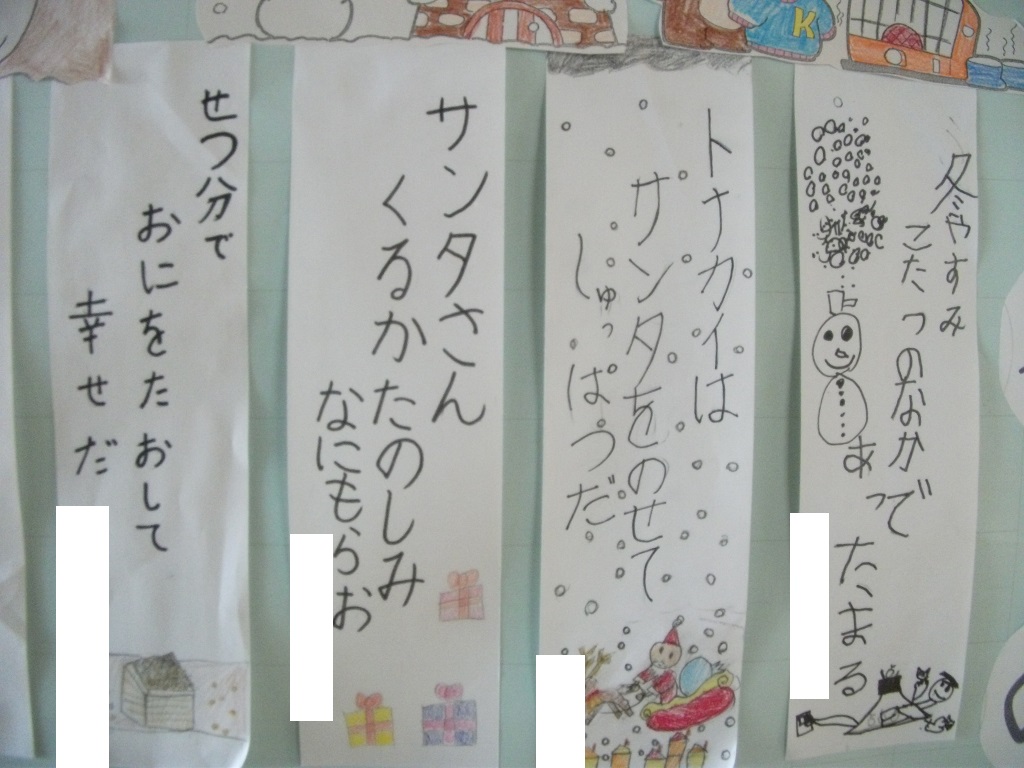 冬やすみ
こたつのなかで
あったまる
トナカイは
サンタをのせて
しゅっぱつだ
サンタさん
くるかたのしみ
なにもらお
せつ分で
おにをたおして
幸せだ
K